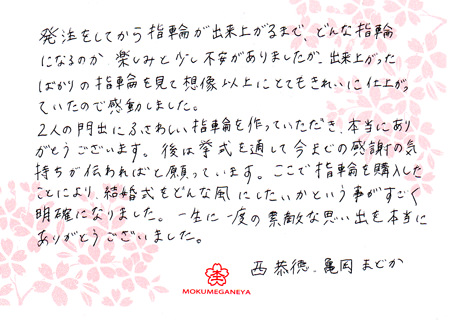 発注をしてから指輪が出来上がるまで、どんな指輪
になるのか 楽しみと少し不安がありましたが、出来上がった
ばかりの指輪を見て想像以上にとてもきれいに仕上がっ
ていたので感動しました。
2人の門出にふさわしい指輪を作っていただき、本当にあり
がとうございます。後は挙式を通して今までの感謝の気
持ちが伝わればと願っています。ここで指輪を購入した
ことにより、結婚式をどんな風にしたいかという事がすごく
明確になりました。一生に一度の素敵な思い出を本当に
ありがとうございました。
西 恭徳、亀岡 まどか
MOKUMEGANEYA